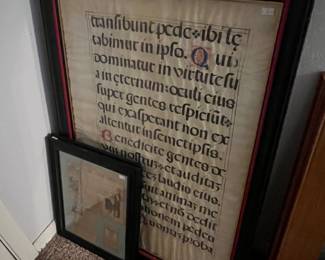 transibunt pede· ibi le
tabimur in ipso. Qui
dominatur in virtute su
a in eternum: oculi eius
super gentes respiciūt:
qui exasperant non ex
altentur in semetipsis.
Benedicite gentes de
um nostrū: et auditas
laudis eius
suit animas me
et no dedit
onem pede
uonias proba